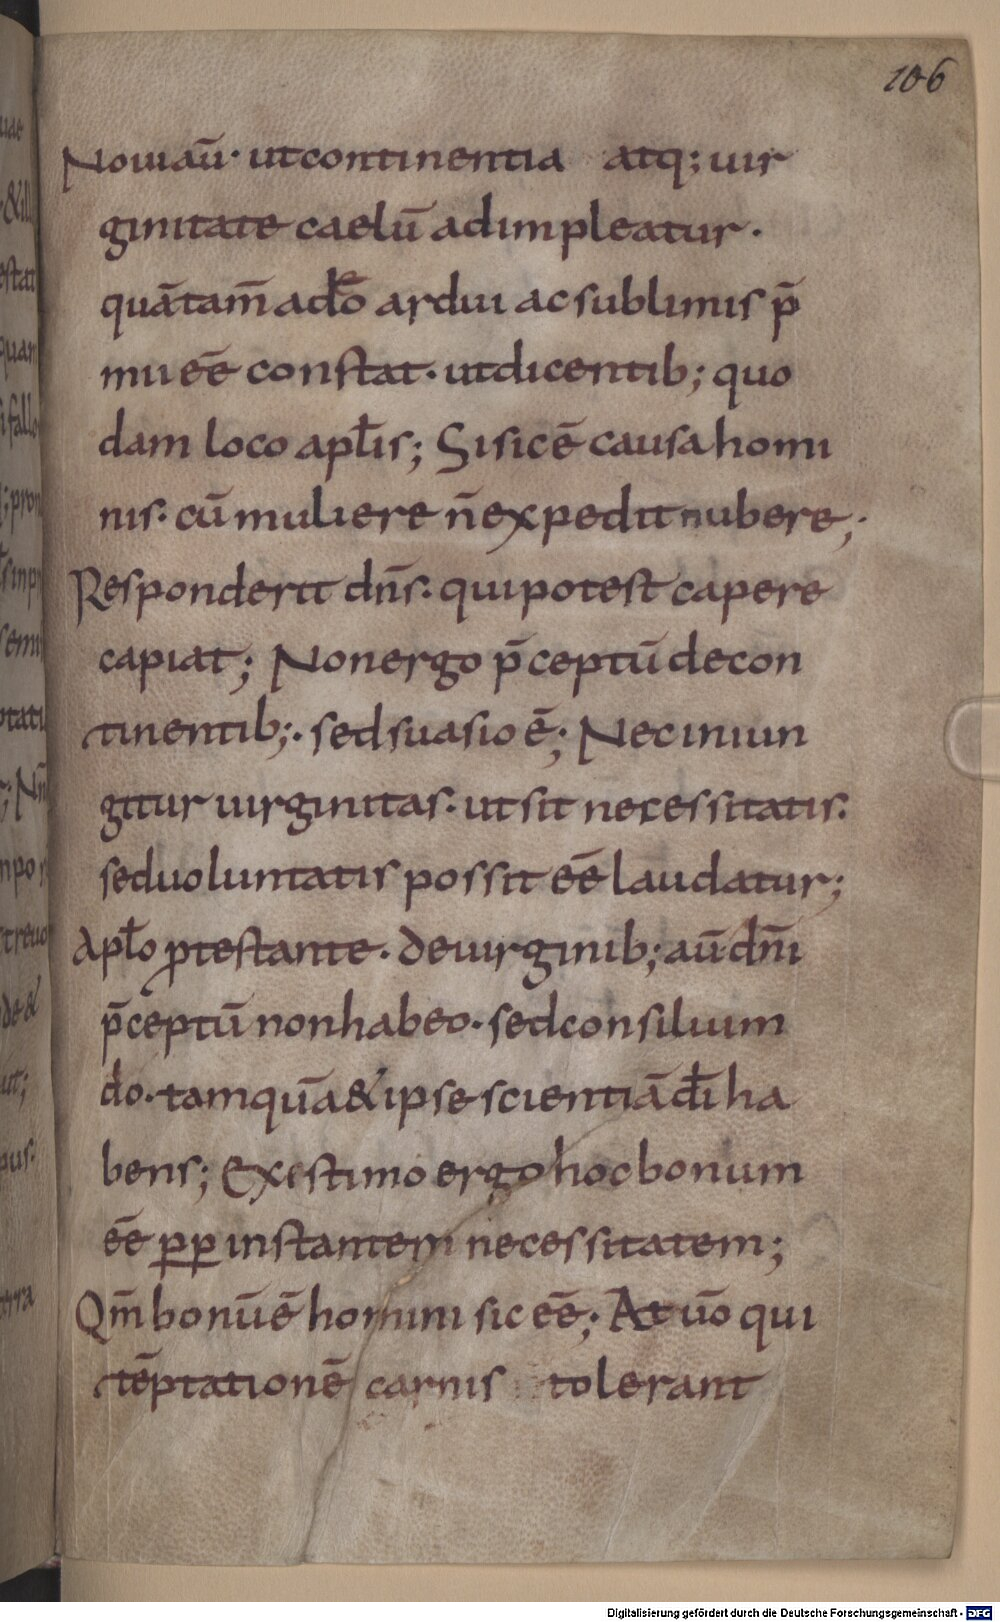 106
Nouiaū· utcontinentia atq; uir
ginitate caelū adimpleatur·
quātam̄ ad̄o ardui ac sublimis p̄
mii eē constat· utdicentib; quo
dam loco apl̄is; Si sic ē causa homi
nis· cū muliere n̄ expedit nubere;·
Responderit dn̄s· qui potest capere
capiat; Non ergo p̄ceptū decon
tinentib;· sed suasio ē; Nec iniun
gitur uirginitas· ut sit necessitatis:
sed uoluntatis possit eē laudatur;
Apl̄o ꝓtestante· deuirginib; aū dn̄i
p̄ceptū non habeo· sed consilium
do· tamquā & ipse scientiā d̄i ha
bens; Exestimo ergo hoc bonum
eē ꝑꝑ instantem necessitatem;
Qm̄ bonū ē homini sic eē; At ūo qui
tēptationē carnis tolerant
Digitalisierung gefördert durch die Deutsche Forschungsgemeinschaft - DFG